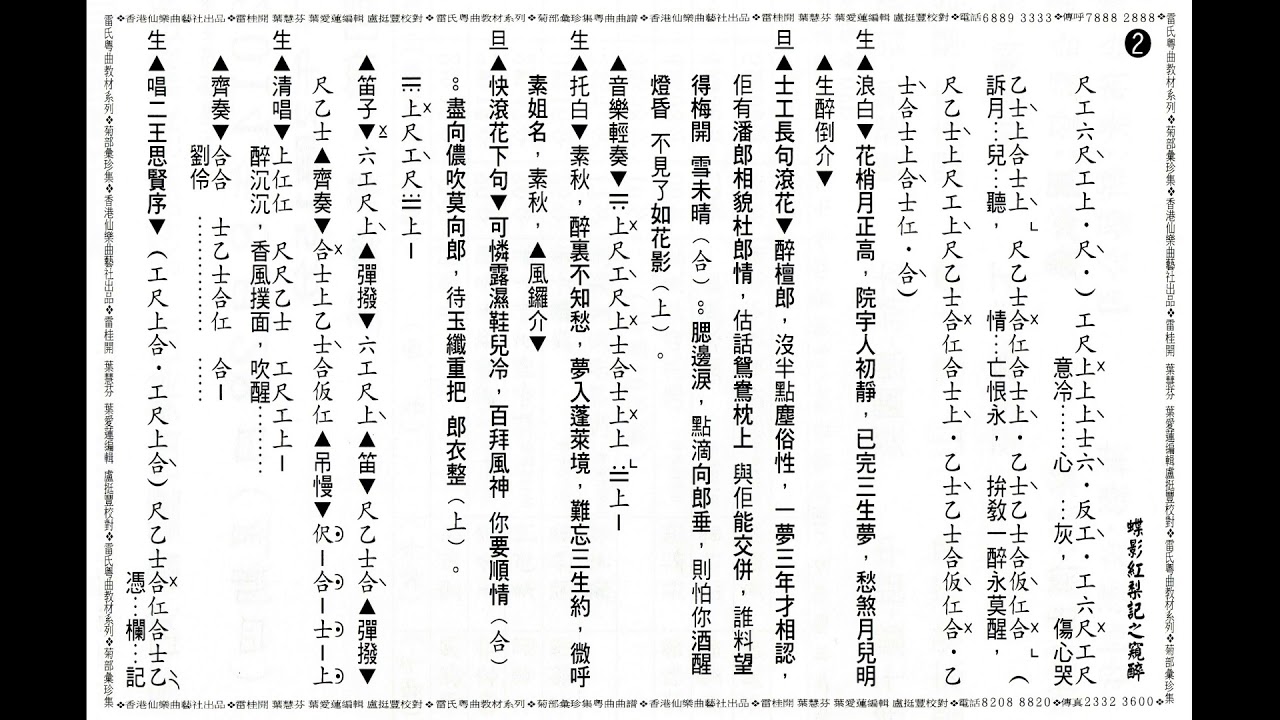 ❖香港仙樂曲藝社出品❖雷桂開 葉慧芬 葉愛蓮編輯 盧挺豐校對❖雷氏粵曲教材系列❖菊部彙珍集粵曲曲譜❖香港仙樂曲藝社出品❖雷桂開 葉慧芬 葉愛蓮編輯 盧挺豐校對❖電話6889 3333❖傳呼7888 2888❖
2
蝶影紅梨記之窺醉
尺工六尺工上·尺·）工尺上上上士六·反工·工六尺工尺
意冷……心…灰，傷心哭
乙士上合士上 尺乙士合仜合士上·乙士乙士合仮仜合（
訴月…兒…聽，情…亡恨永，拚教一醉永莫醒，
尺乙士上乙士上尺工上尺乙士合仜合士上·乙士乙士合仮仜合·乙
士合士上合士仜·合）
生▲浪白▼花梢月正高，院宇人初靜，已完三生夢，愁煞月兒明
▲生醉倒介▼
旦▲士工長句滾花▼醉檀郎，沒半點塵俗性，一夢三年才相認，
佢有潘郎相貌杜郎情，估話鴛鴦枕上 與佢能交併，誰料望
得梅開 雪未晴（合）。腮邊淚，點滴向郎垂，則怕你酒醒
燈昏 不見了如花影（上）。
▲音樂輕奏▼三·上尺工尺上士合士上上 三·上－
生▲托白▼素秋，醉裏不知愁，夢入蓬萊境，難忘三生約，微呼
素姐名，素秋，▲風鑼介▼
旦▲快滾花下句▼可憐露濕鞋兒冷，百拜風神 你要順情（合）
。盡向儂吹莫向郎，待玉纖重把 郎衣整（上）。
三·上尺工尺三·上－
▲笛子▼六工尺上▲彈撥▼六工尺上▲笛▼尺乙士合▲彈撥▼
尺乙士▲齊奏▼合士上乙士合仮仜▲吊慢▼伬－合－士－上
生▲清唱▼上仜仜 尺尺乙士 工尺工上－
醉沉沉，香風撲面，吹醒………
▲齊奏▼合合 士乙士合仜 合－
劉伶……………
生▲唱二王思賢序▼（工尺上合·工尺上合）尺乙士合仜合士乙
憑…欄…記
❖香港仙樂曲藝社出品❖雷桂開 葉慧芬 葉愛蓮編輯 盧挺豐校對❖雷氏粵曲教材系列❖菊部彙珍集粵曲曲譜❖香港仙樂曲藝社出品❖雷桂開 葉慧芬 葉愛蓮編輯 盧挺豐校對❖電話8208 8820❖傳真2332 3600❖
雷氏粵曲教材系列❖菊部彙珍集❖香港仙樂曲藝社出品❖雷桂開 葉慧芬 葉愛蓮編輯 盧挺豐校對❖雷氏粵曲教材系列❖菊部彙珍集
雷氏粵曲教材系列❖菊部彙珍集❖香港仙樂曲藝社出品❖雷桂開 葉慧芬 葉愛蓮編輯 盧挺豐校對❖雷氏粵曲教材系列❖菊部彙珍集